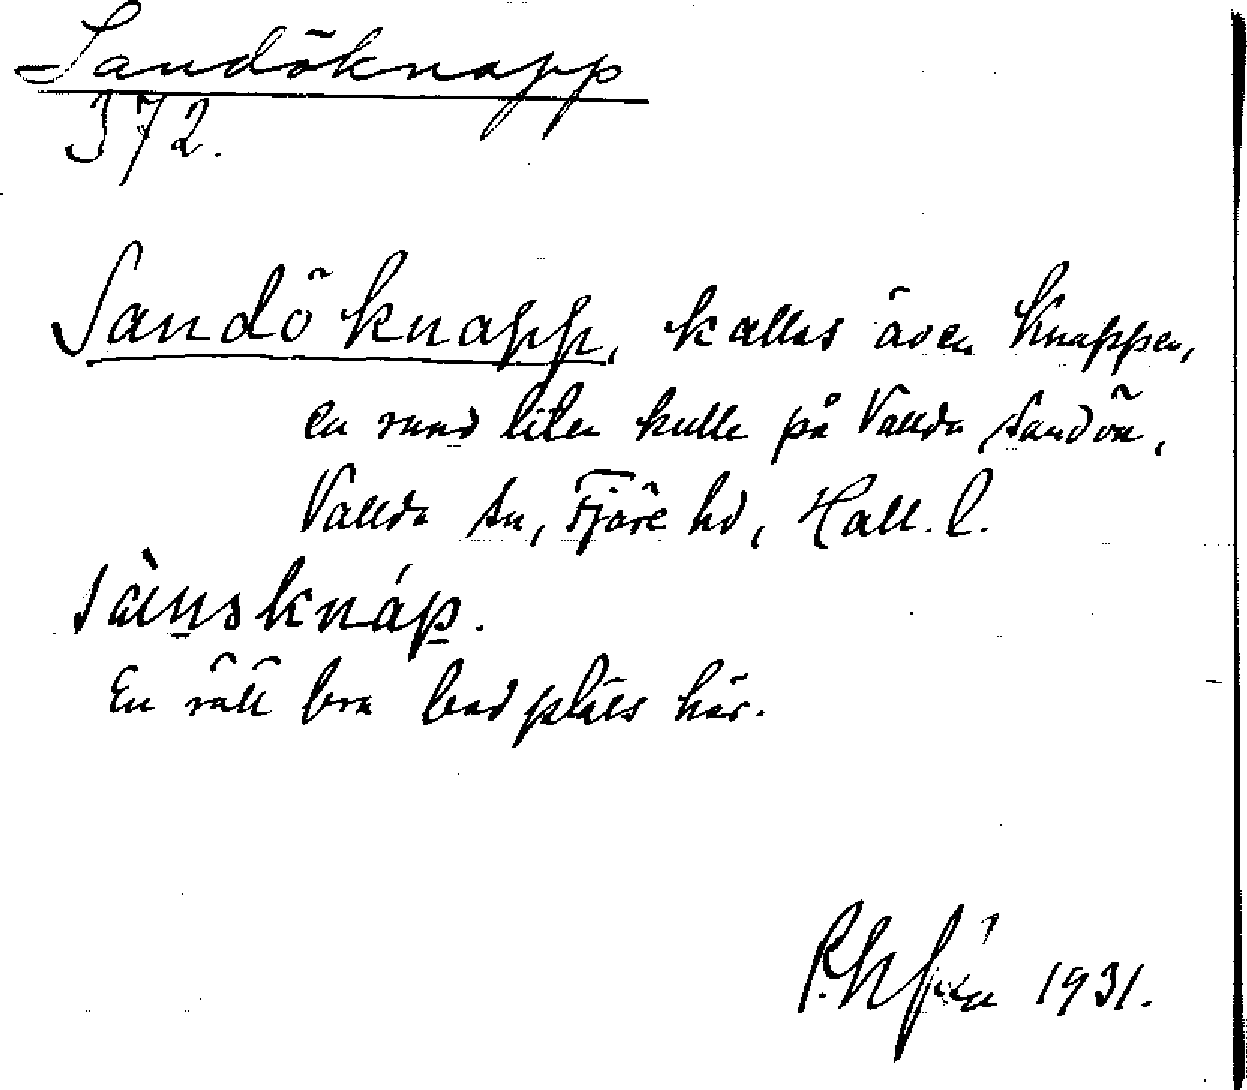 Sandöknapp
372.
Sandöknapp, kallas även Knappen,
en rund liten kulle på Vallda Sandön,
Vallda sn, Fjäre hd, Hall. l.
En rätt bra badplats här.
1931.